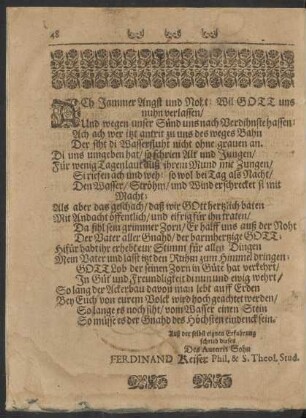 48
ACh Jammer Angst und Noht: Wil GOTT uns
nuhn verlassen/
Und wegen unser Sünd uns nach Verdihnste hassen:
Ach ach wer itzt antrit zu uns des weges Bahn
Der siht di Wasserfluht nicht ohne grauen an.
Di uns umgeben hat/ so schrien Alt und Jungen/
Für wenig Tagen lauft aus ihrem Mund und Zungen/
Si riefen ach und weh: so wol bei Tag als Nacht/
Den Wasser/ Ströhm/ und Wind erschrecket si mit
Macht:
Als aber das geschach/ daß wir GOtt hertzlich baten
Mit Andacht öffentlich/ und eifrig für ihn traten/
Da fihl sein grimmer Zorn/ Er halff uns auß der Noht
Der Vater aller Gnahd/ der barmhertzige GOTT.
Hifür habt ihr erhebt eur Stimm für allen Dingen
Mein Vater und lasst itzt den Ruhm zum Himmel dringen:
GOTT Lob der seinen Zorn in Güte hat verkehrt/
In Güt und Freundligkeit di nun und ewig wehrt/
So lang der Ackerbau davon man lebt auff Erden
Bey Euch von eurem Volck wird hoch geachtet werden/
So lange es noch siht/ vom Wasser einen Stein
So müsse es der Gnahd des Höchsten eindenck sein.
Auß der selbst eignen Erfahrung
schrieb dieses
Des Autoris Sohn
FERDINAND Keiser Phil. & S. Theol. Stud.